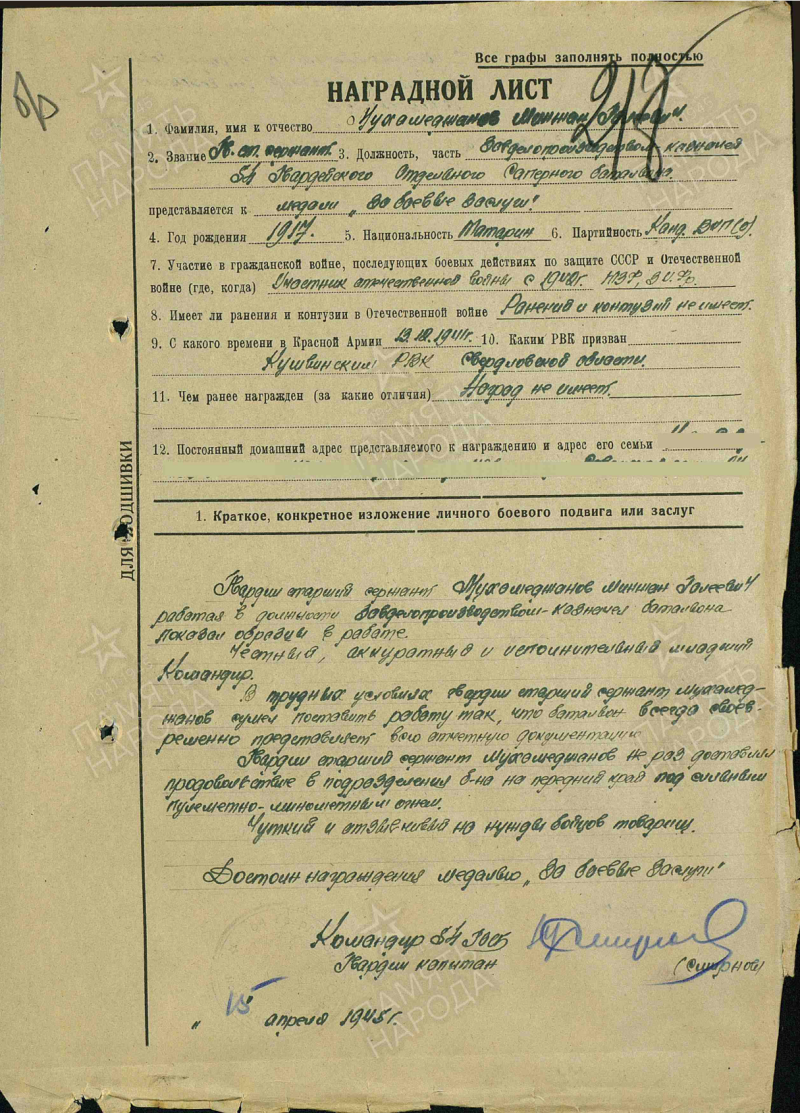 Все графы заполнять полностью
218
НАГРАДНОЙ ЛИСТ
1. Фамилия, имя и отчество Мухамеджанов Миннан Галеевич.
2. Звание Гв. ст. сержант 3. Должность, часть Завделопроизводством-казначей
54 Гвардейского Отдельного Саперного батальона
представляется к медали „За боевые заслуги"
4. Год рождения 1917. 5. Национальность Татарин 6. Партийность Канд. ВКП(б)
7. Участие в гражданской войне, последующих боевых действиях по защите СССР и Отечественной
войне (где, когда) Участник отечественной войны с 1942г.
8. Имеет ли ранения и контузии в Отечественной войне Ранений и контузий не имеет.
9. С какого времени в Красной Армии 1941г. 10. Каким РВК призван
Кушвинским РВК Свердловской области.
11. Чем ранее награжден (за какие отличия) Наград не имеет.
12. Постоянный домашний адрес представляемого к награждению и адрес его семьи
1. Краткое, конкретное изложение личного боевого подвига или заслуг
Гвардии старший сержант Мухамеджанов Миннан Галеевич
работая в должности Завделопроизводством-казначея батальона
показал образцы в работе.
Честный, аккуратный и исполнительный младший
Командир.
В трудных условиях гвардии старший сержант Мухамед-
жанов сумел поставить работу так, что батальон всегда свое-
временно представляет всю отчетную документацию
Гвардии старший сержант Мухамеджанов не раз доставлял
продовольствие в подразделения б-на на передний край под сильным
пулеметно-минометным огнем.
Чуткий и отзывчивый на нужды бойцов товарищ.
Достоин награждения медалью „За боевые заслуги"
Командир 54 ГОСБ
Гвардии капитан (Смирнов)
„15" апреля 1945г.
ДЛЯ ПОДШИВКИ
ПАМЯТЬ НАРОДА